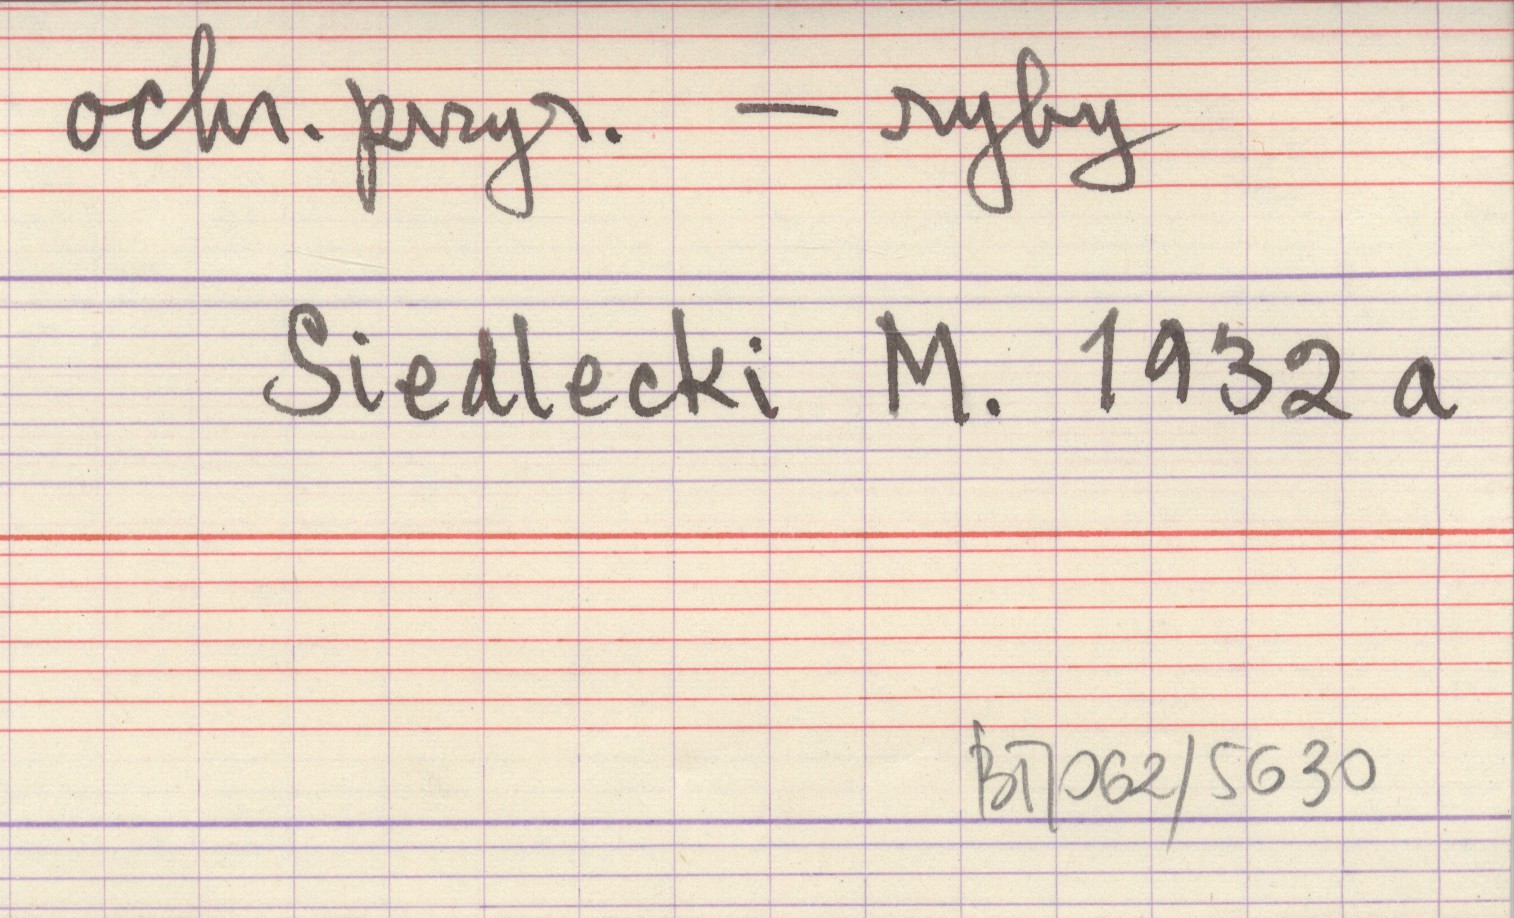 ochr. przyr. — ryby
Siedlecki M. 1932 a
BT/062/5630